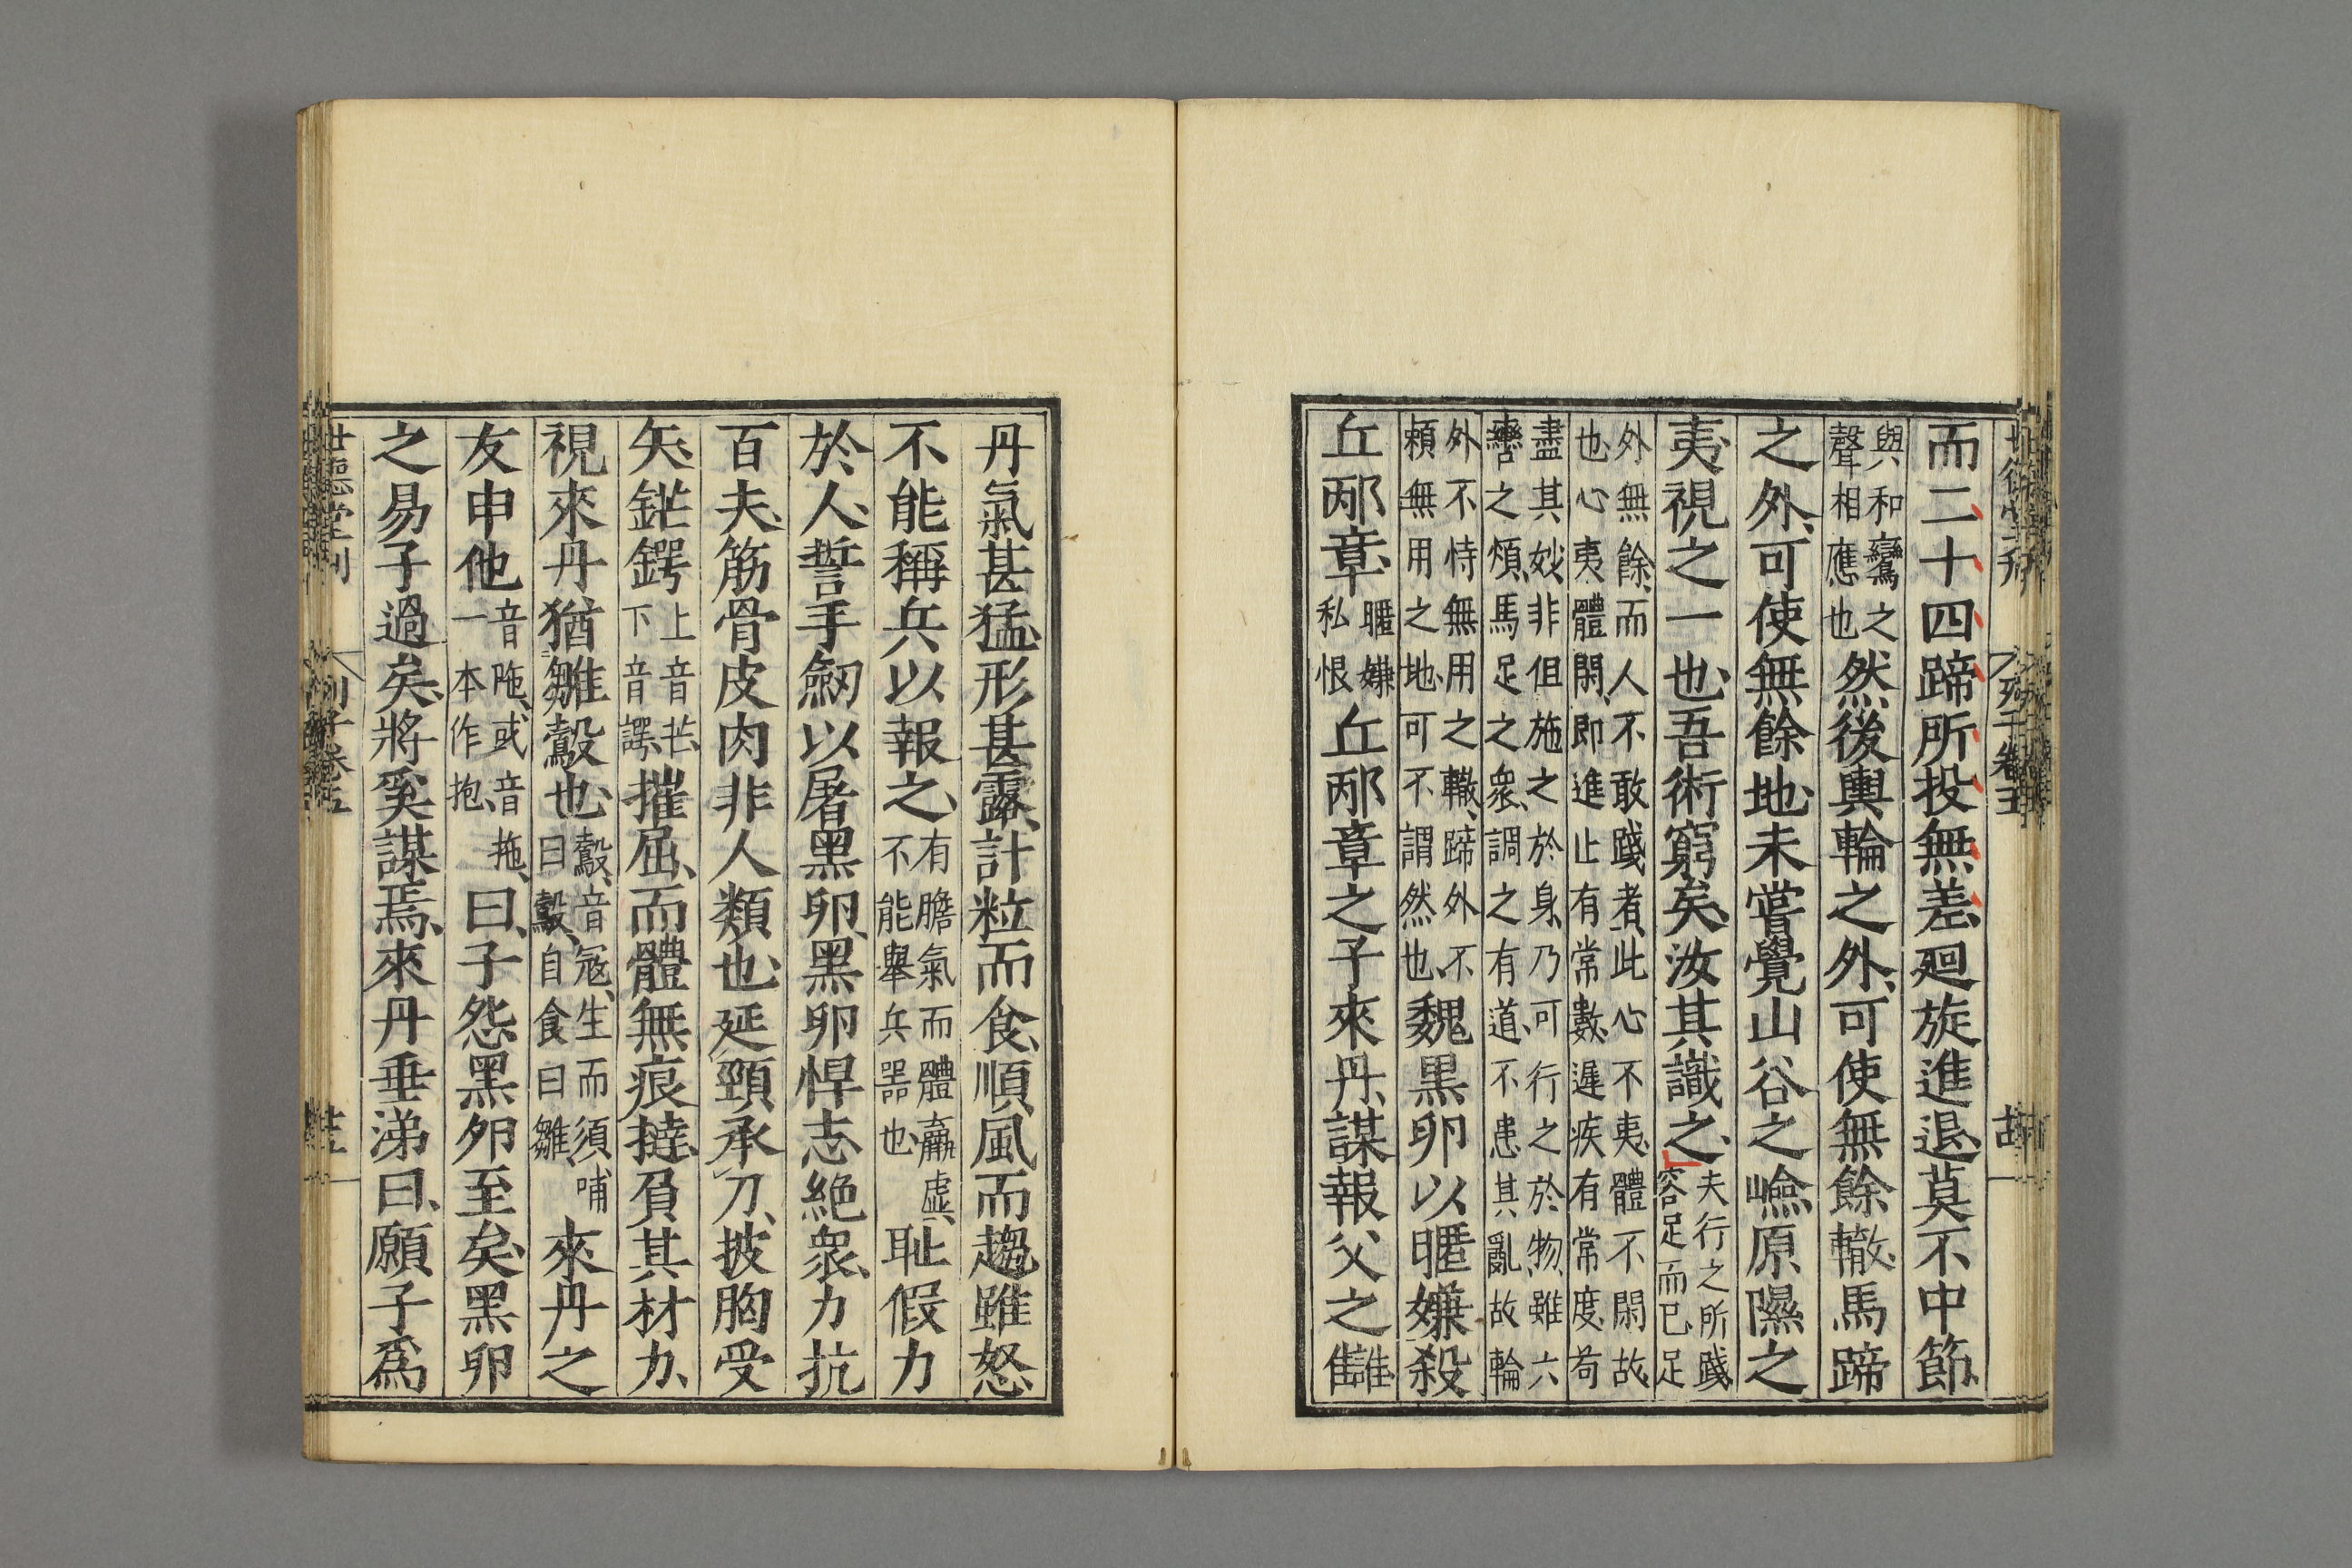 而二十四蹄所投無差、廻旋進退、莫不中節、
與和鸞之
聲相應也
然後輿輪之外、可使無餘轍、馬蹄
之外、可使無餘地、未嘗覺山谷之嶮、原隰之
夷、視之一也、吾術窮矣、汝其識之、
夫行之所踐
容足而已、足
外無餘、而人不敢踐者、此心不夷、體不閑故
也、心夷、體閑、即進止有常數、遲疾有常度、苟
盡其妙、非但施之於身、乃可行之於物、雖六
轡之煩、馬足之衆、調之有道、不患其亂故輪
外不恃無用之轍、蹄外不
頼無用之地、可不謂然也、
魏黒卵以暱嫌殺
丘邴章、
暱嫌
私恨
丘邴章之子來丹、謀報父之讎
丹氣甚猛、形甚露、計粒而食、順風而趨、雖怒
不能稱兵以報之、
有膽氣而體羸虛、
不能舉兵器也、
耻假力
於人、誓手劒以屠黑卵、黑卵悍志絶衆、力抗
百夫、筋骨皮肉、非人類也、延頸承刀、披胸受
矢、鋩鍔
上音芒、
下音諤、
摧屈、而體無痕撻、負其材力、
視來丹猶雛鷇也、
鷇、音冦、生而須哺
曰鷇、自食曰雛、
來丹之
友申他
音陁、或音拖、
一本作抱、
曰、子怨黑卵至矣、黑卵
之易子過矣、將奚謀焉、來丹垂涕曰、願子爲
世德堂刊
列子卷五